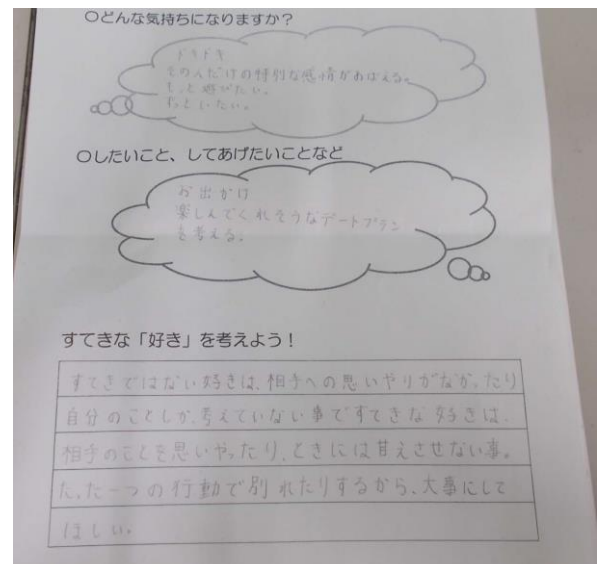 ○どんな気持ちになりますか?
ドキドキ
その人だけの特別な感情があばえる。
もっと遊びたい。
ずっといたい。
○したいこと、してあげたいことなど
お出かけ
楽しんでくれそうなデートプラン
を考える。
すてきな「好き」を考えよう!
すてきではない好きは、相手への思いやりがなかったり
自分のことしか、考えていない事ですてきな好きは、
相手のことを思いやったり、ときには甘えさせない事。
たった一つの行動で別れたりするから、大事にして
ほしい。